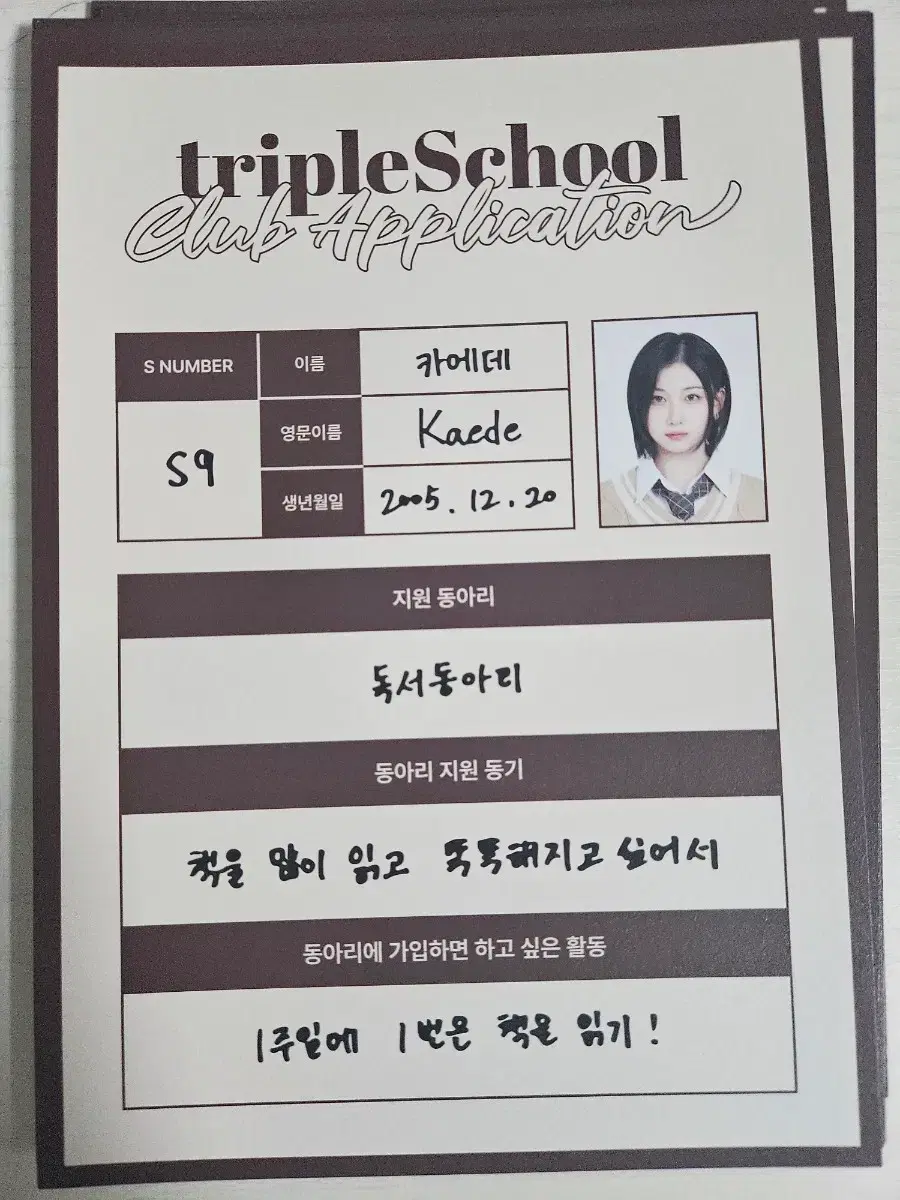 tripleSchool
Club Application
S NUMBER
S9
이름
카에데
영문이름
Kaede
생년월일
2005.12.20
지원 동아리
독서동아리
동아리 지원 동기
책을 많이 읽고 똑똑해지고 싶어서
동아리에 가입하면 하고 싶은 활동
1주일에 1번은 책을 읽기!